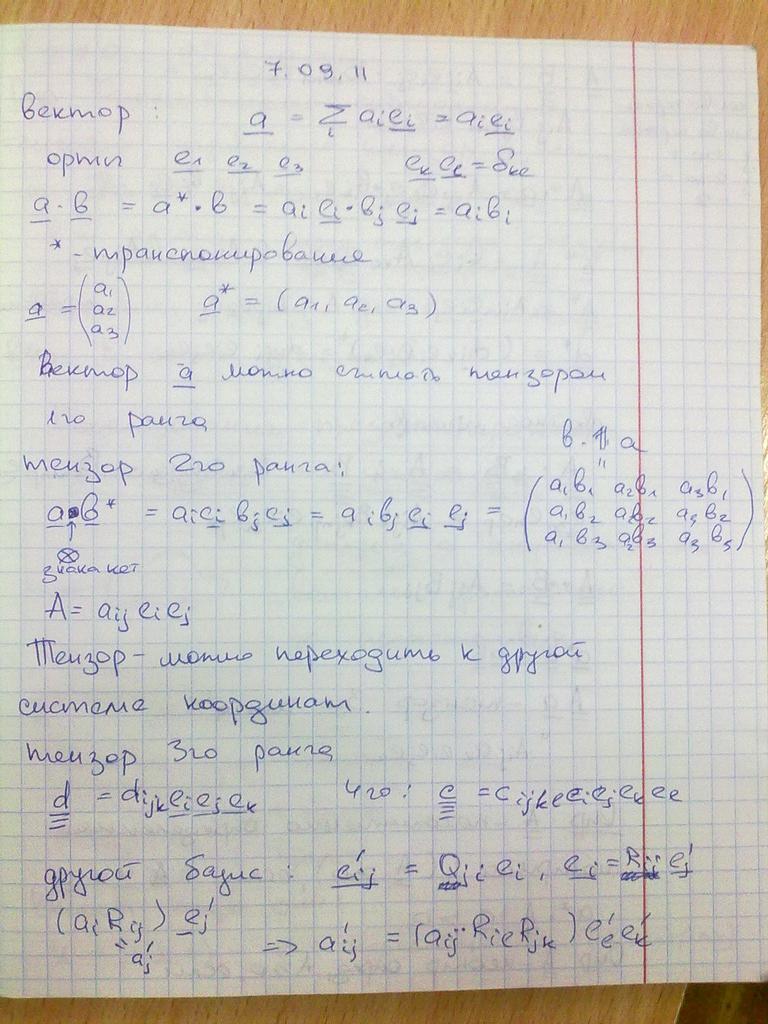 7.09.11
вектор : a = Σ_i aᵢeᵢ = aᵢeᵢ
орты e₁ e₂ e₃ eₖeₗ = δₖₗ
a · b = a* · b = aᵢeᵢ · bⱼeⱼ = aᵢbᵢ
* - транспонирование
a = (a₁ a₂ a₃) a* = (a₁, a₂, a₃)
Вектор a можно считать тензором
1го ранга
тензор 2го ранга:
b · a
a b* = aᵢeᵢ bⱼeⱼ = aᵢbⱼ eᵢ eⱼ = (a₁b₁ a₂b₁ a₃b₁
a₁b₂ a₂b₂ a₃b₂
a₁b₃ a₂b₃ a₃b₃)
↑
⊗
знака нет
A = aᵢⱼ eᵢeⱼ
Тензор - можно переходить к другой
системе координат.
тензор 3го ранга
d = dᵢⱼₖeᵢeⱼeₖ 4го: c = cᵢⱼₖₑeᵢeⱼeₖeₑ
другой базис : e'ⱼ = Qⱼᵢ eᵢ, eᵢ = Rᵢⱼ e'ⱼ
(aᵢRᵢⱼ) e'ⱼ
= a'ⱼ => a'ᵢⱼ = (aᵢⱼ · Rᵢₑ Rⱼₖ) e'ₑ e'ₖ